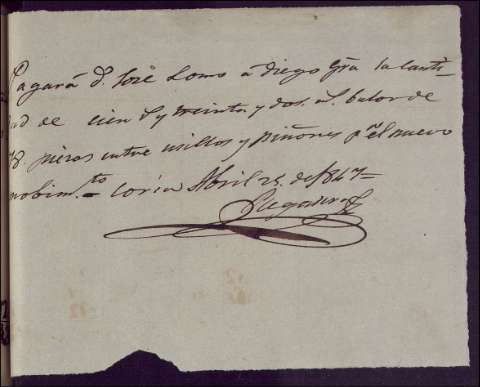 Pagará D. José Lomo a Diego Gra. la canti-
dad de cien y treinta y dos rs. balor de
78. piezas entre usillos y piñones pa. el nuevo
mobim.to = Coria Abril 25. de 1847=